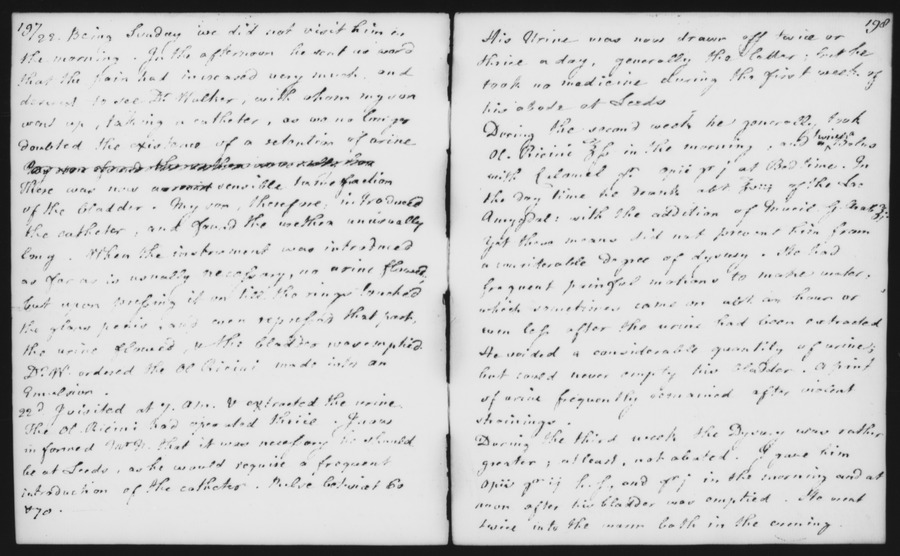 197
22. Being Sunday we did not visit him in
the morning. In the afternoon he sent us word
that the pain had increased very much, and
desired to see Dr Walker, with whom my son
went up, taking a catheter, as we no longer
doubted the existence of a retention of urine
There was now a sensible tumefaction
of the bladder. My son, therefore, introduced
the catheter, and found the urethra unusually
long. When the instrument was introduced
as far as is usually necessary, no urine flowed,
but upon pressing it on till the rings touched
the glans penis, and even repressed that part,
the urine flowed, & the bladder was emptied.
Dr W. ordered the Ol Ricini made into an
Emulsion.
22d I visited at 7. A.m. & extracted the urine.
The Ol. Ricini had operated thrice. I now
informed Mr that it was necessary he should
be at Leeds, as he would require a frequent
introduction of the catheter. Pulse betwixt 60
& 70.
198
His Urine was now drawn off twice or
thrice a day, generally the latter; but he
took no medicine during the first week of
his abode at Leeds
During the second week he generally took
Ol. Ricini in the morning, and Bolus
with Calomel gr opii gr j at Bed time. In
the day time he drank abt of the Lac
Amygdal: with the addition of Mucil G Arab
Yet these means did not prevent him from
a considerable degree of dysury. He had
frequent painful motions to make water,
which sometimes came on abt an hour or
even less after the urine had been extracted
He voided a considerable quantity of urine;
but could never empty his bladder. A pint
of urine frequently remained after violent
strainings.
During the third week the Dysury was rather
greater; at least, not abated. I gave him
Opii gr ij h. s. and gr j in the morning and at
noon after his bladder was emptied. He went
twice into the warm bath in the evening.